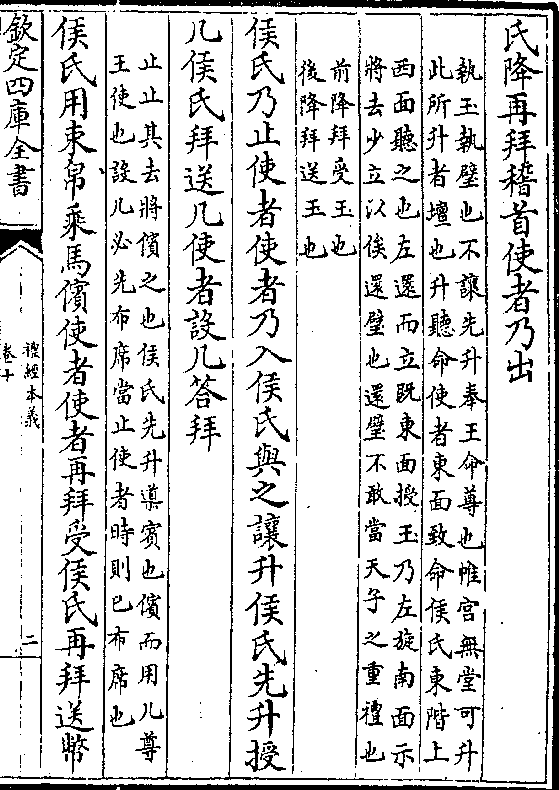 氏降再拜稽首使者乃出
執玉執璧也不讓先升奉王命尊也帷宮無堂可升
此所升者壇也升聽命使者東面致命侯氏東階上
西面聽之也左還而立既東面授玉乃左旋南面示
將去少立以俟還璧也還璧不敢當天子之重禮也
前降拜受玉也
後降拜送玉也
侯氏乃止使者使者乃入侯氏與之讓升侯氏先升授
几侯氏拜送几使者設几答拜
止止其去將儐之也侯氏先升導賓也儐而用几尊
王使也設几必先布席當止使者時則已布席也
侯氏用束帛乘馬儐使者使者再拜受侯氏再拜送幣
欽定四庫全書
禮經本義
卷十
二